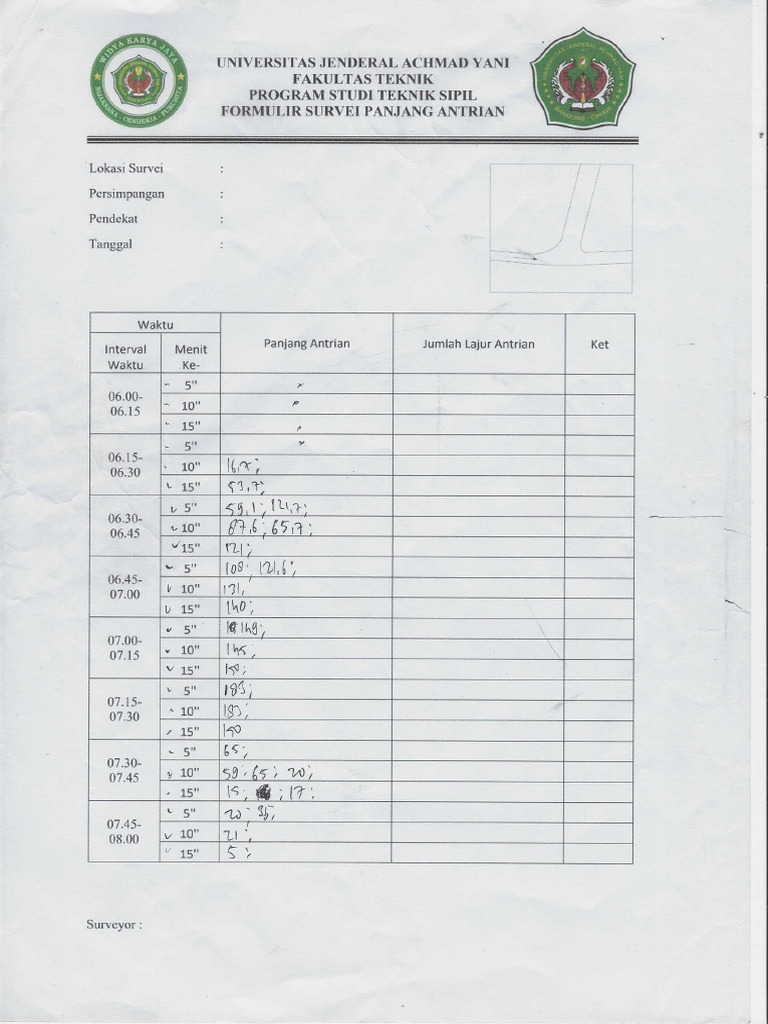 WIDYA KARYA JAYA
UNIVERSITAS JENDERAL ACHMAD YANI
FAKULTAS TEKNIK
PROGRAM STUDI TEKNIK SIPIL
FORMULIR SURVEI PANJANG ANTRIAN
UNIVERSITAS JENDERAL ACHMAD YANI
BANDUNG - CIMAHI
Lokasi Survei :
Persimpangan :
Pendekat :
Tanggal :
Waktu Panjang Antrian Jumlah Lajur Antrian Ket
Interval Waktu Menit Ke-
06.00-06.15 5"
10"
15"
06.15-06.30 5"
10" 16,7;
15" 53,7;
06.30-06.45 5" 59,1; 121,7;
10" 87,6; 65,7;
15" 121;
06.45-07.00 5" 108; 121,6;
10" 131,
15" 140;
07.00-07.15 5" 149;
10" 145;
15" 150;
07.15-07.30 5" 183;
10" 183;
15" 150
07.30-07.45 5" 65;
10" 59; 65; 20;
15" 15; ; 17;
07.45-08.00 5" 20; 35;
10" 21;
15" 5;
Surveyor :